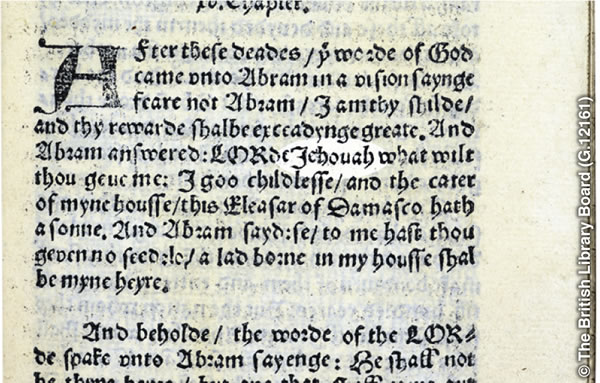 xv. Chapter.
AFter these deades / ẏ worde of God
came vnto Abram in a vision saynge
feare not Abram / J am thy shilde /
and thy rewarde shalbe exceadynge greate. And
Abram answered: LORde Jehouah what wilt
thou geue me: J goo childlesse / and the cater
of myne housse / this Eleasar of Damasco hath
a sonne. And Abram sayd: se / to me hast thou
geven no seed: lo / a lad borne in my housse shal
be myne heyre.
And beholde / the worde of the LOR⸗
de spake vnto Abram sayenge: He shall not
be thyne heyre / but one that
© The British Library Board (G.12161)